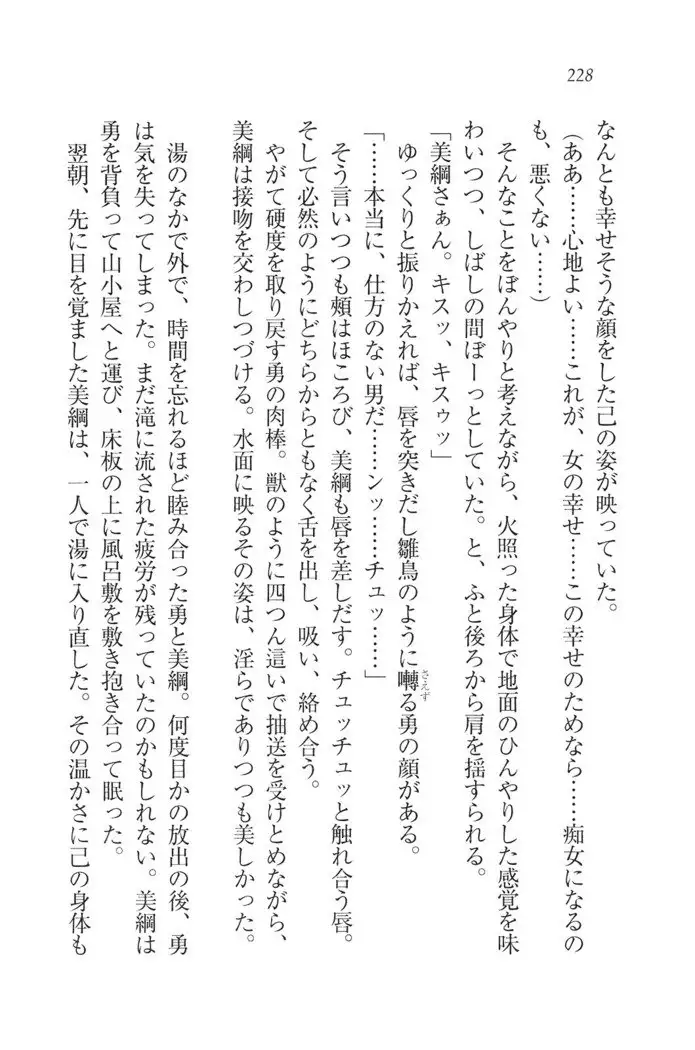 228
なんとも幸せそうな顔をした己の姿が映っていた。
(ああ……心地よい……これが、女の幸せ……この幸せのためなら……痴女になるの
も、悪くない……)
そんなことをぼんやりと考えながら、火照った身体で地面のひんやりした感覚を味
わいつつ、しばしの間ぼーっとしていた。と、ふと後ろから肩を揺すられる。
「美綱さぁん。キスッ、キスゥッ」
ゆっくりと振りかえれば、唇を突きだし雛鳥のように囀る勇の顔がある。
さえず
「……本当に、仕方のない男だ……ンッ……チュッ……」
そう言いつつも頰はほころび、美綱も唇を差しだす。チュッチュッと触れ合う唇。
そして必然のようにどちらからともなく舌を出し、吸い、絡め合う。
やがて硬度を取り戻す勇の肉棒。獣のように四つん這いで抽送を受けとめながら、
美綱は接吻を交わしつづける。水面に映るその姿は、淫らでありつつも美しかった。
湯のなかで外で、時間を忘れるほど睦み合った勇と美綱。何度目かの放出の後、勇
は気を失ってしまった。まだ滝に流された疲労が残っていたのかもしれない。美綱は
勇を背負って山小屋へと運び、床板の上に風呂敷を敷き抱き合って眠った。
翌朝、先に目を覚ました美綱は、一人で湯に入り直した。その温かさに己の身体も